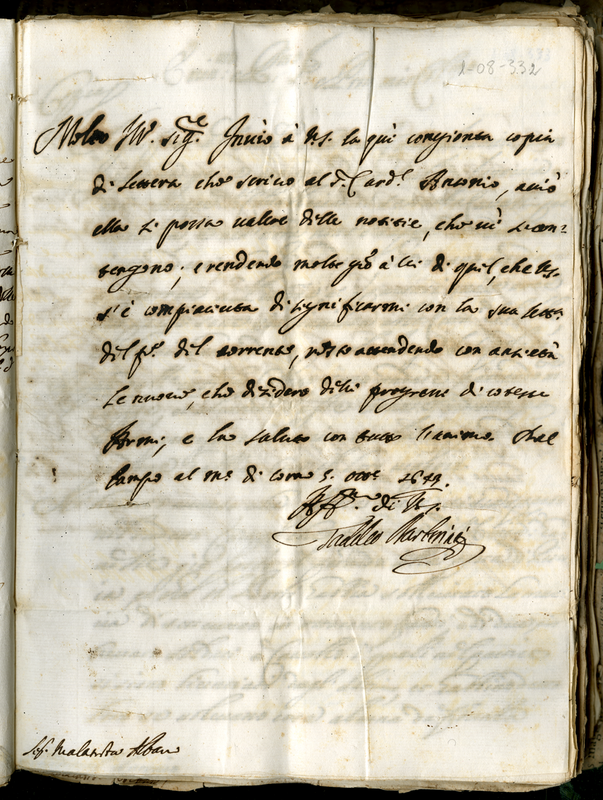 1-08-332
Molto Ill.re sig.re Invio à V.S. la quì congionta copia
di lettera che scrivo al s.r Card.l Antonio, acciò
ella si possa valere delle notitie, che vi si con-
tengono; e rendendo molte gr.e à lei di quel, che V.S.
s'è compiaciuta di significarmi con la sua lett.a
del p.o del corrente, resto attendendo con ansietà
le nuove, che desidero delli progressi di coteste
Armi, e la saluto con tutto l'animo. Dal
Campo al m.e di 5. ott.e 1643.
Aff.mo di V.S.
Taddeo Barberini
Sig. Malatesta Albani